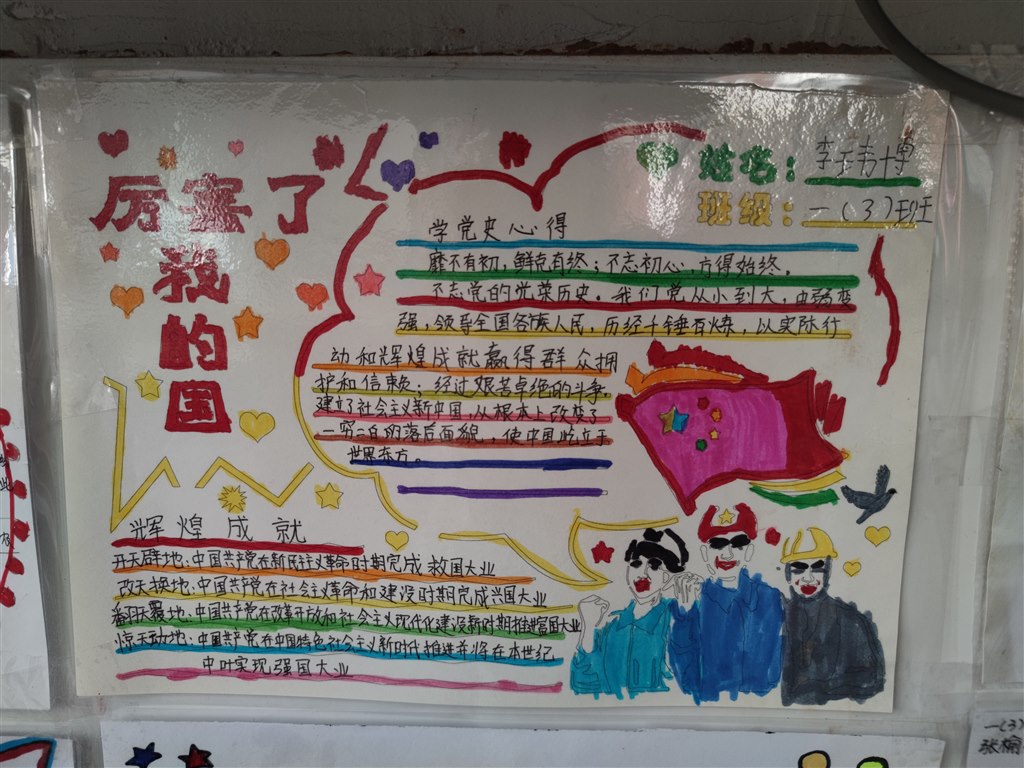 厉害了
我
的
国
姓名：李玉韩博
班级：一（3）班
学党史心得
靡不有初，鲜克有终；不忘初心，方得始终。
不忘党的光荣历史。我们党从小到大，由弱变
强，领导全国各族人民，历经千锤百炼，以实际行
动和辉煌成就赢得群众拥
护和信赖；经过艰苦卓绝的斗争，
建立了社会主义新中国，从根本上改变了
一穷二白的落后面貌，使中国屹立于
世界东方。
辉煌成就
开天辟地：中国共产党在新民主义革命时期完成救国大业
改天换地：中国共产党在社会主义革命和建设时期完成兴国大业
翻天覆地：中国共产党在改革开放和社会主义现代化建设新时期推进富国大业
惊天动地：中国共产党在中国特色社会主义新时代推进并将在本世纪
中叶实现强国大业
一（3）
张楠